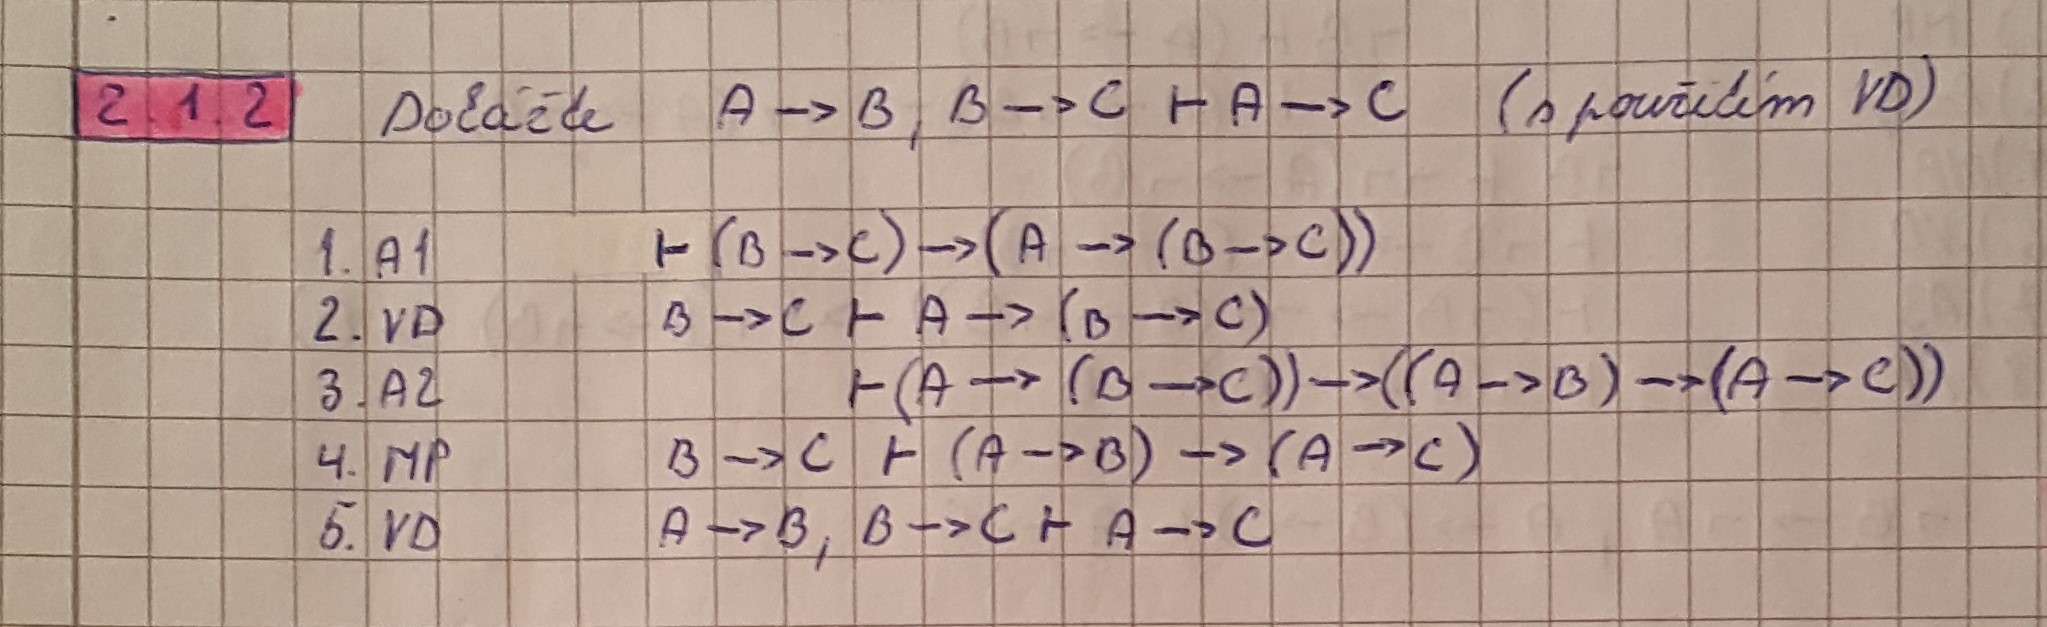 2.1.2 Dokážte A → B, B → C ⊢ A → C (s použitím VD)
1. A1 ⊢ (B → C) → (A → (B → C))
2. VD B → C ⊢ A → (B → C)
3. A2 ⊢ (A → (B → C)) → ((A → B) → (A → C))
4. MP B → C ⊢ (A → B) → (A → C)
5. VD A → B, B → C ⊢ A → C